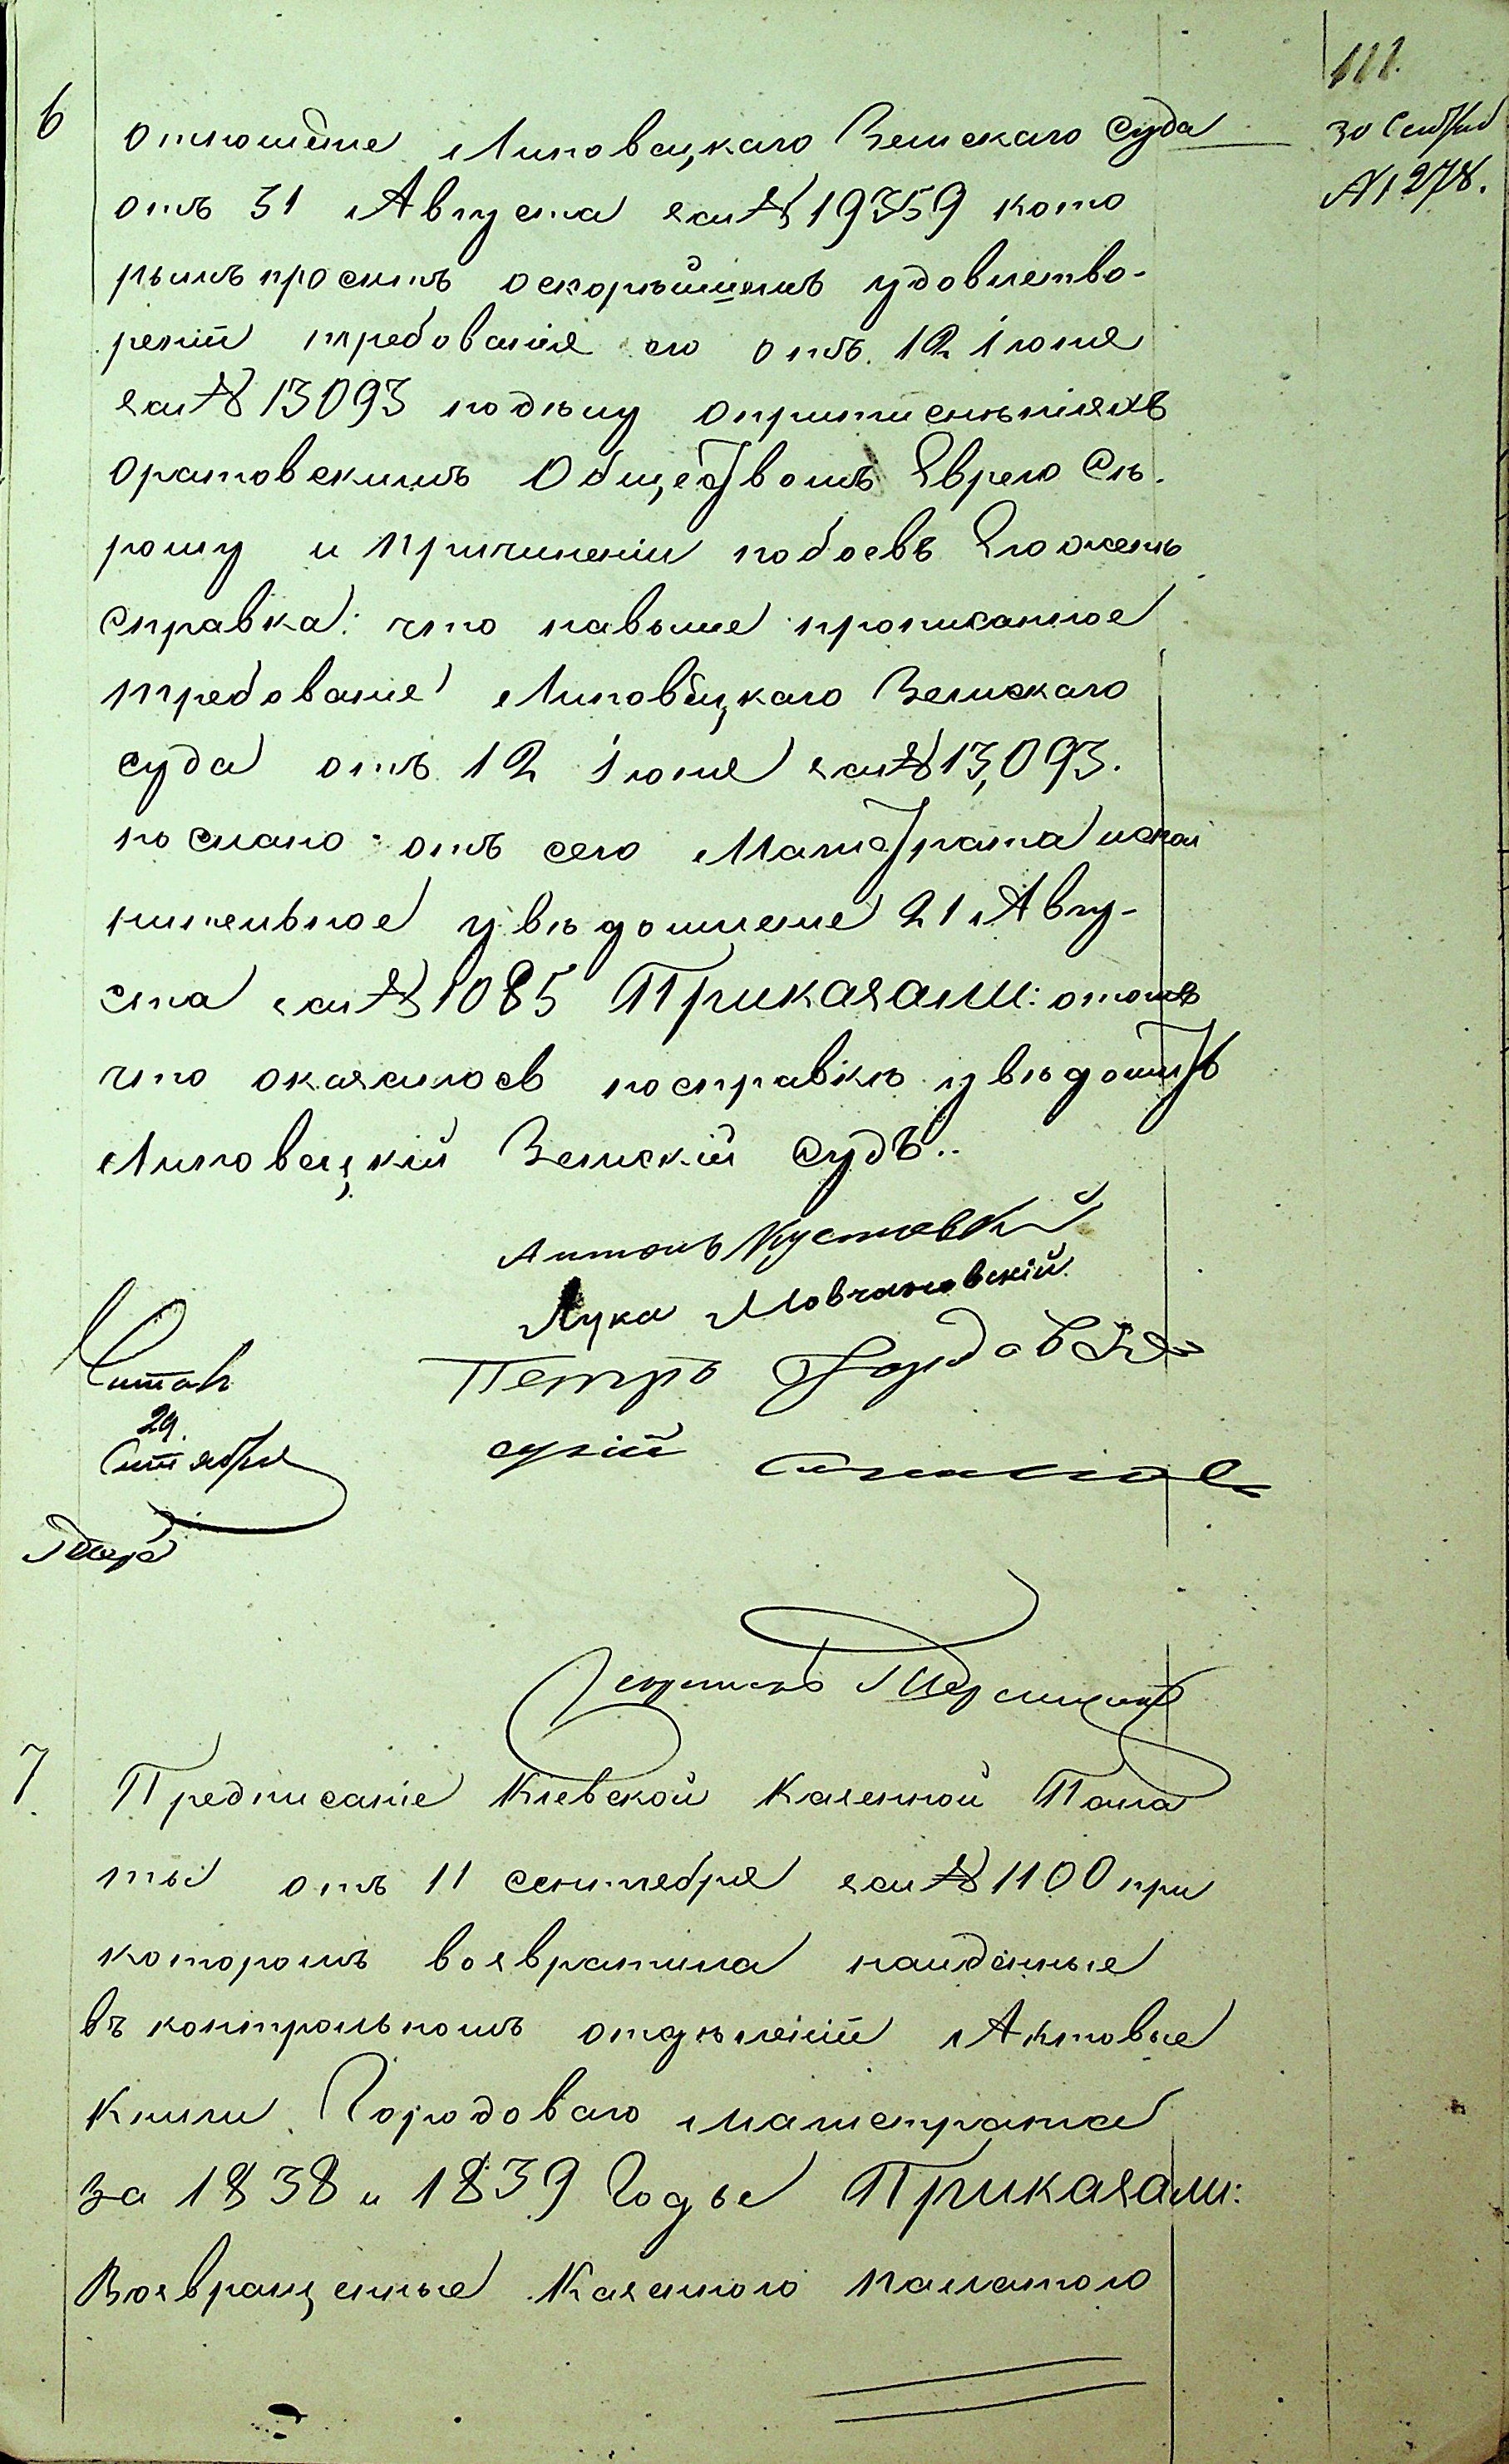 111.
6
Отношеніе Липовецкаго Земскаго Суда
30 Сентября
№ 1278.
отъ 31 Августа за № 19359 кото
рымъ проситъ оскорѣйшемъ удовлетво-
реніи требованія его отъ 12 Іюня
за № 13093 подѣлу опритисненіяхъ
Оратовскимъ Обществомъ Еврею Сѣ.
рому и Причиненіи побоевъ Егоженѣ
Справка: что навыше прописанное
требованіе Липовецкаго Земскаго
суда отъ 12 Іюня за № 13,093.
послано отъ сего Магистрата испол
нительное увѣдомленіе 21 Авгу-
ста за № 1085 Приказали: отомъ
что оказалось посправкѣ увѣдомить
Липовецкій Земскій Судъ..
Антонъ Кустовскій
Лука Мовчановскій
Петръ
Читалъ
29.
Сентября
7
Предписаніе Кіевской Казенной Пала
ты отъ 11 сентября за № 1100 при
которомъ возвратила найденные
въ контрольномъ отдѣленіи Актовые
Книги Городоваго магистрата
за 1838 и 1839 Годы Приказали:
Возвращенные Казенною палатою